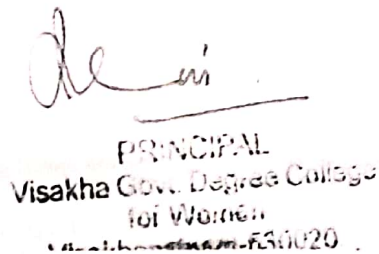 PRINCIPAL
Visakha Govt. Degree College
for Women
Visakhapatnam-530020